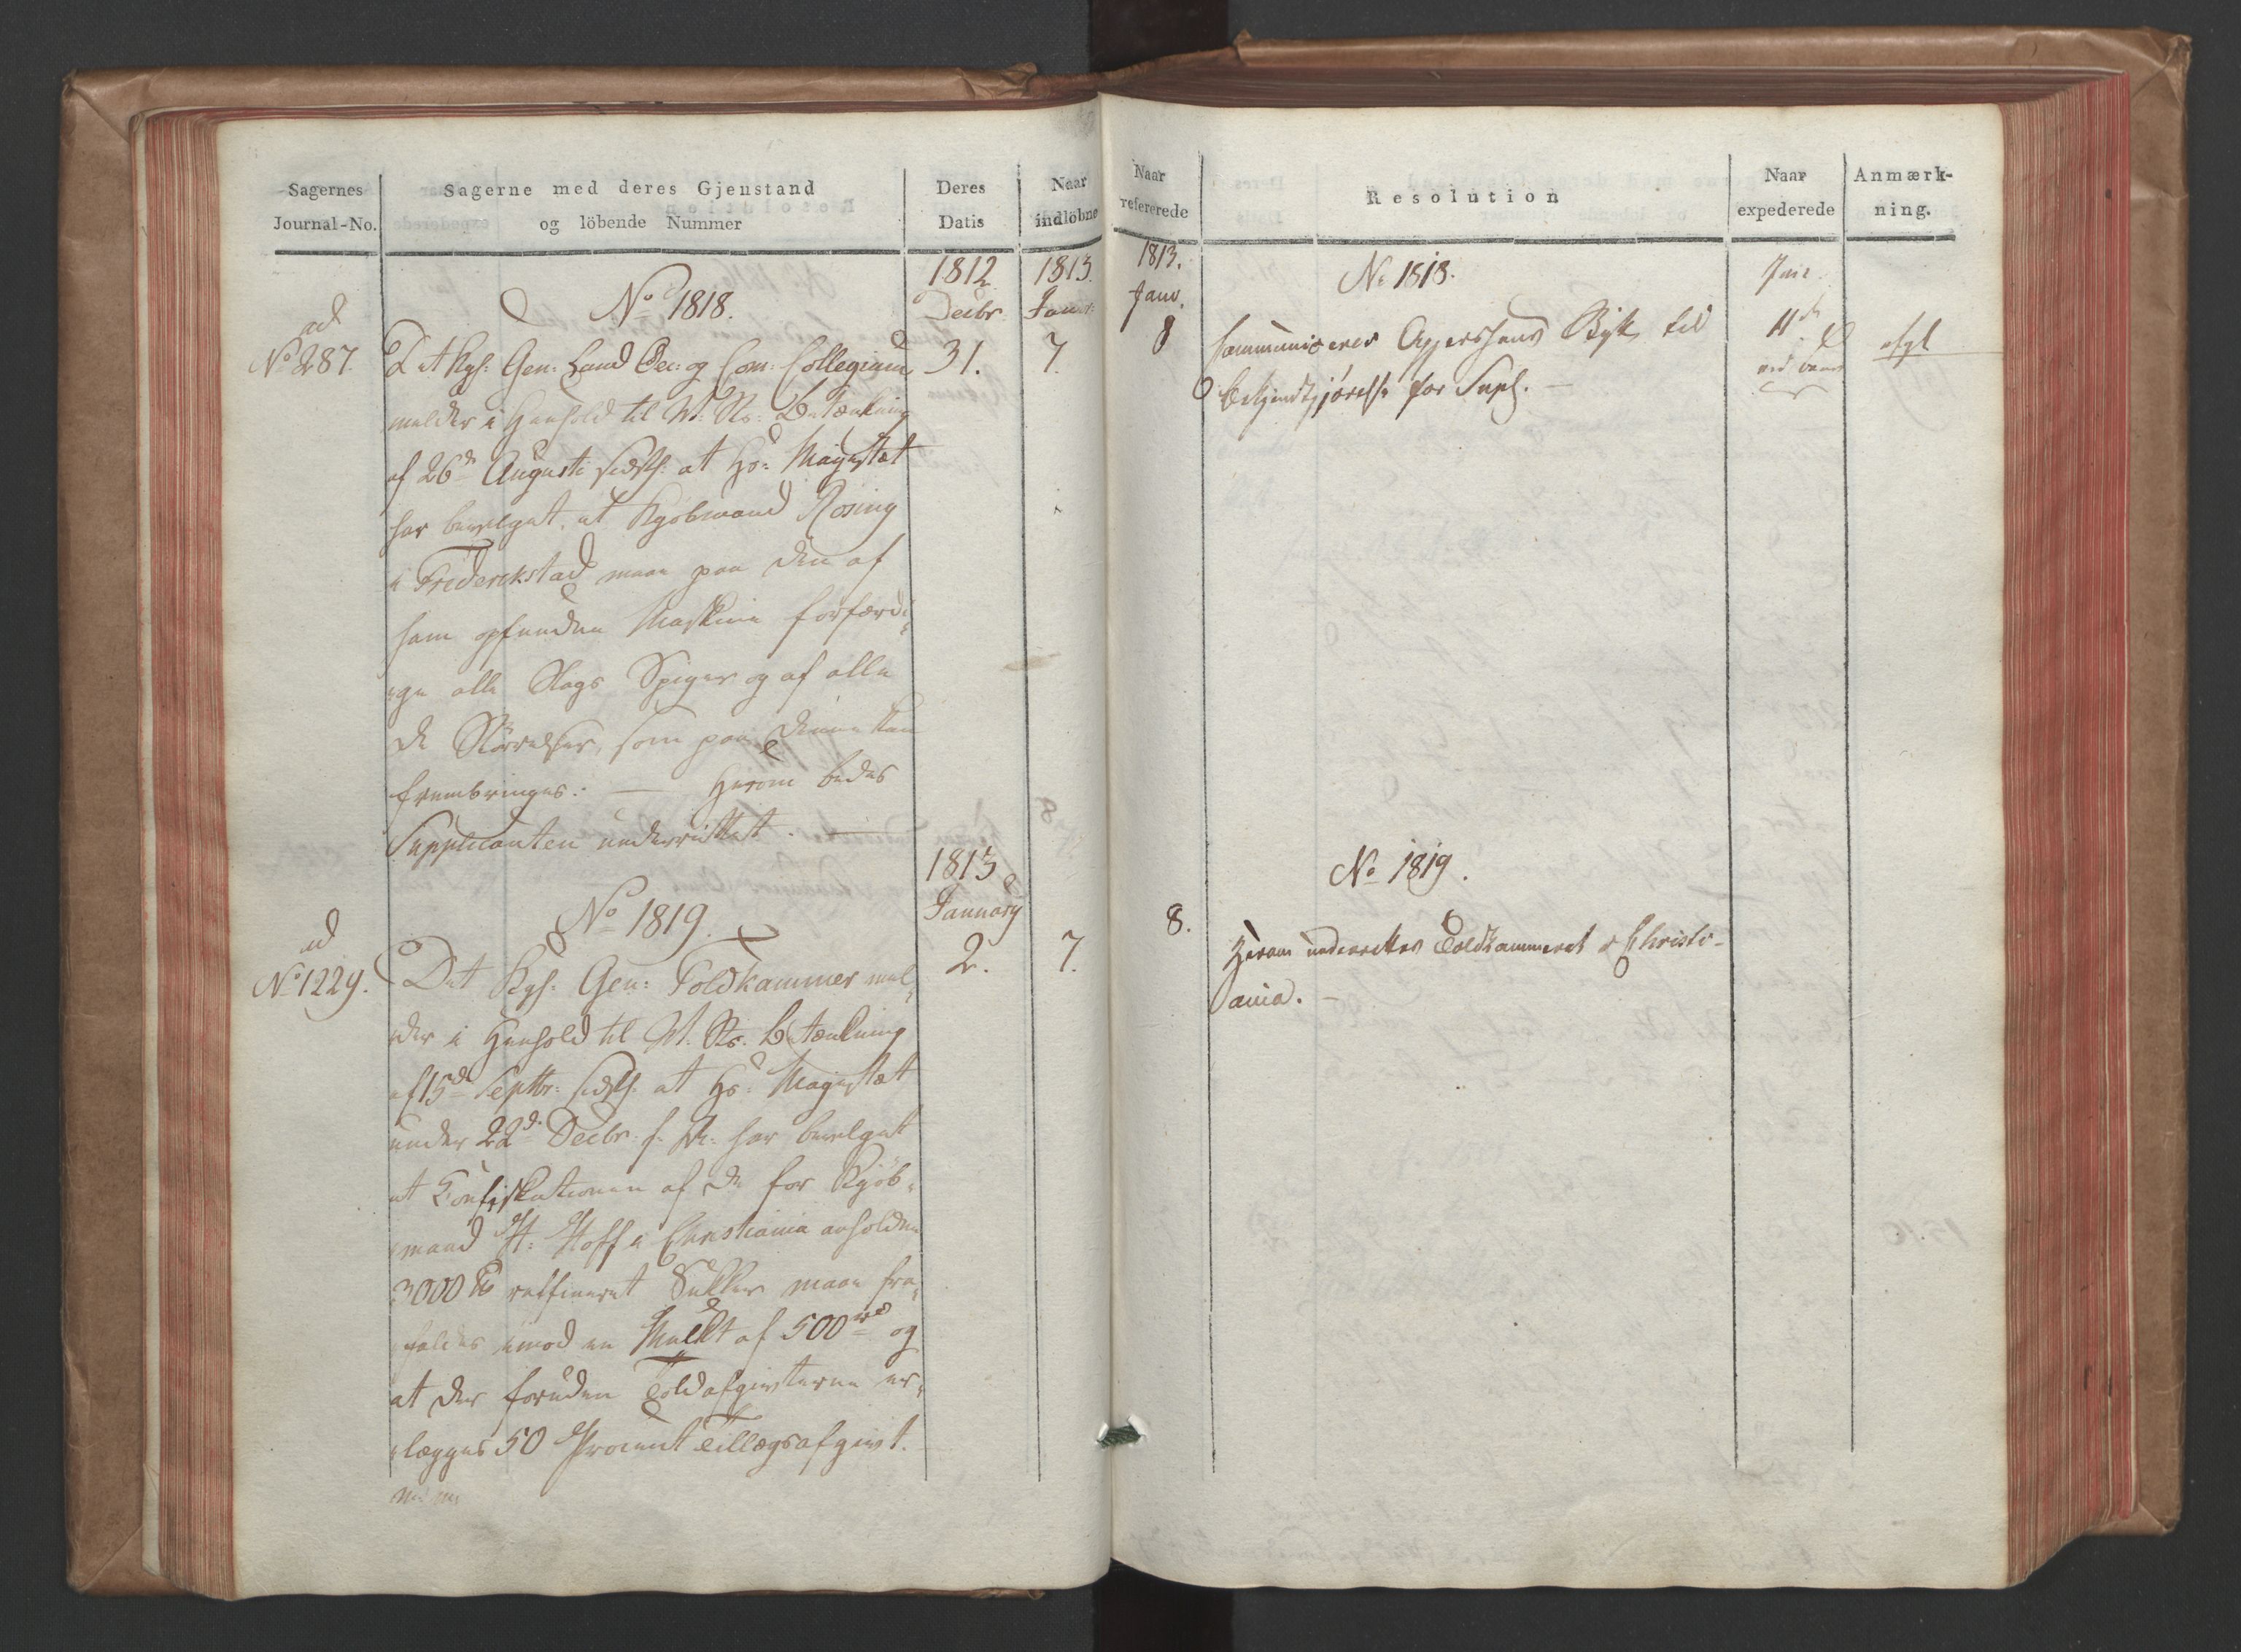 Sagernes
Journal-No.
Sagerne med deres Gjenstand
og löbende Nummer
Deres
Datis
Naar
indlöbne
ad
No 287.
No 1818.
1812
Decbr
31.
1813.
Januar
7.
Det Kgl: Gen: Land Oec: og Com: Collegium
melder i Henhold til M: Rs: Betænkning
af 26de Augusti sidstl: at Hs: Majestæt
har bevilget, at Kjøbmand Rosing
i Frederikstad maa paa den af
ham opfundne Maskine forfærdi-
ge alle Slags Spiger og af alle
de Störrelser, som paa denne kan
frembringes. — Herom bedes
Supplicanten underrettet. —
ad
No 1229.
No 1819.
1813
January
2.
7.
Det Kgl: Gen: Toldkammer mel-
der i Henhold til M: Rs: Betænkning
af 15de Septbr: sidstl: at Hs: Majestæt
under 22de Decbr: f. A: har bevilget
at Confiskationen af de for Kjöb-
mand H: Hoff i Christiania anholdne
3000 ℔ raffineret Sukker maa fra-
faldes imod en Mulkt af 500 rd og
at der foruden Toldafgivterne er-
lægges 50 Procent Tillægsafgivt.
m: m:
Naar
refererede
Resolution
Naar
expederede
Anmærk-
ning.
1813.
Janv.
8
No 1818.
communiceres Aggershuus Byk til
Bekjendtgjørelse for Supl. —
11te
afgl
8.
No 1819.
Herom underrettes Toldkammeret i Christi-
ania. —